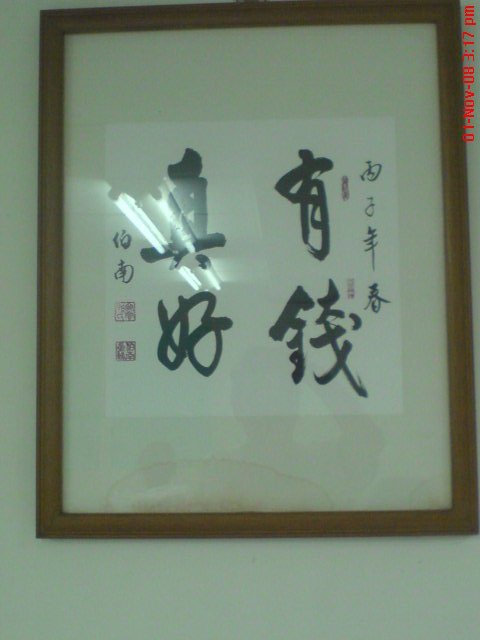 丙子年春
有錢
真好
伯南
01-NOV-08 3:17 PM